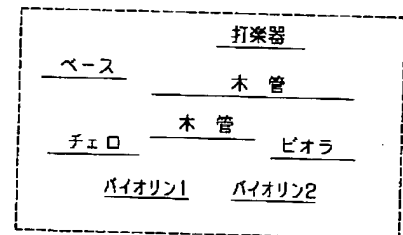 打楽器
ベース
木 管
木 管
チェロ
ビオラ
バイオリン1 バイオリン2